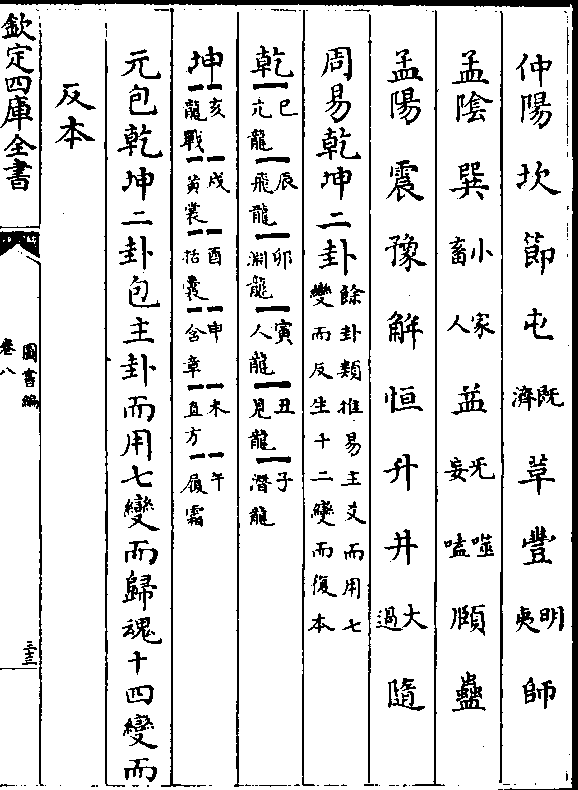 仲陽坎節屯既濟革豐明夷師
孟陰巽小畜家人益无妄噬嗑頤蠱
孟陽震豫解恒升井大過隨
周易乾坤二卦餘卦類推易主爻而用七變而反生十二變而復本
乾巳亢龍辰飛龍卯淵龍寅人龍丑見龍子潛龍
坤亥龍戰戌黄裳酉括囊申含章未直方午履霜
元包乾坤二卦包主卦而用七變而歸魂十四變而
反本
欽定四庫全書
圖書編
卷八
三三